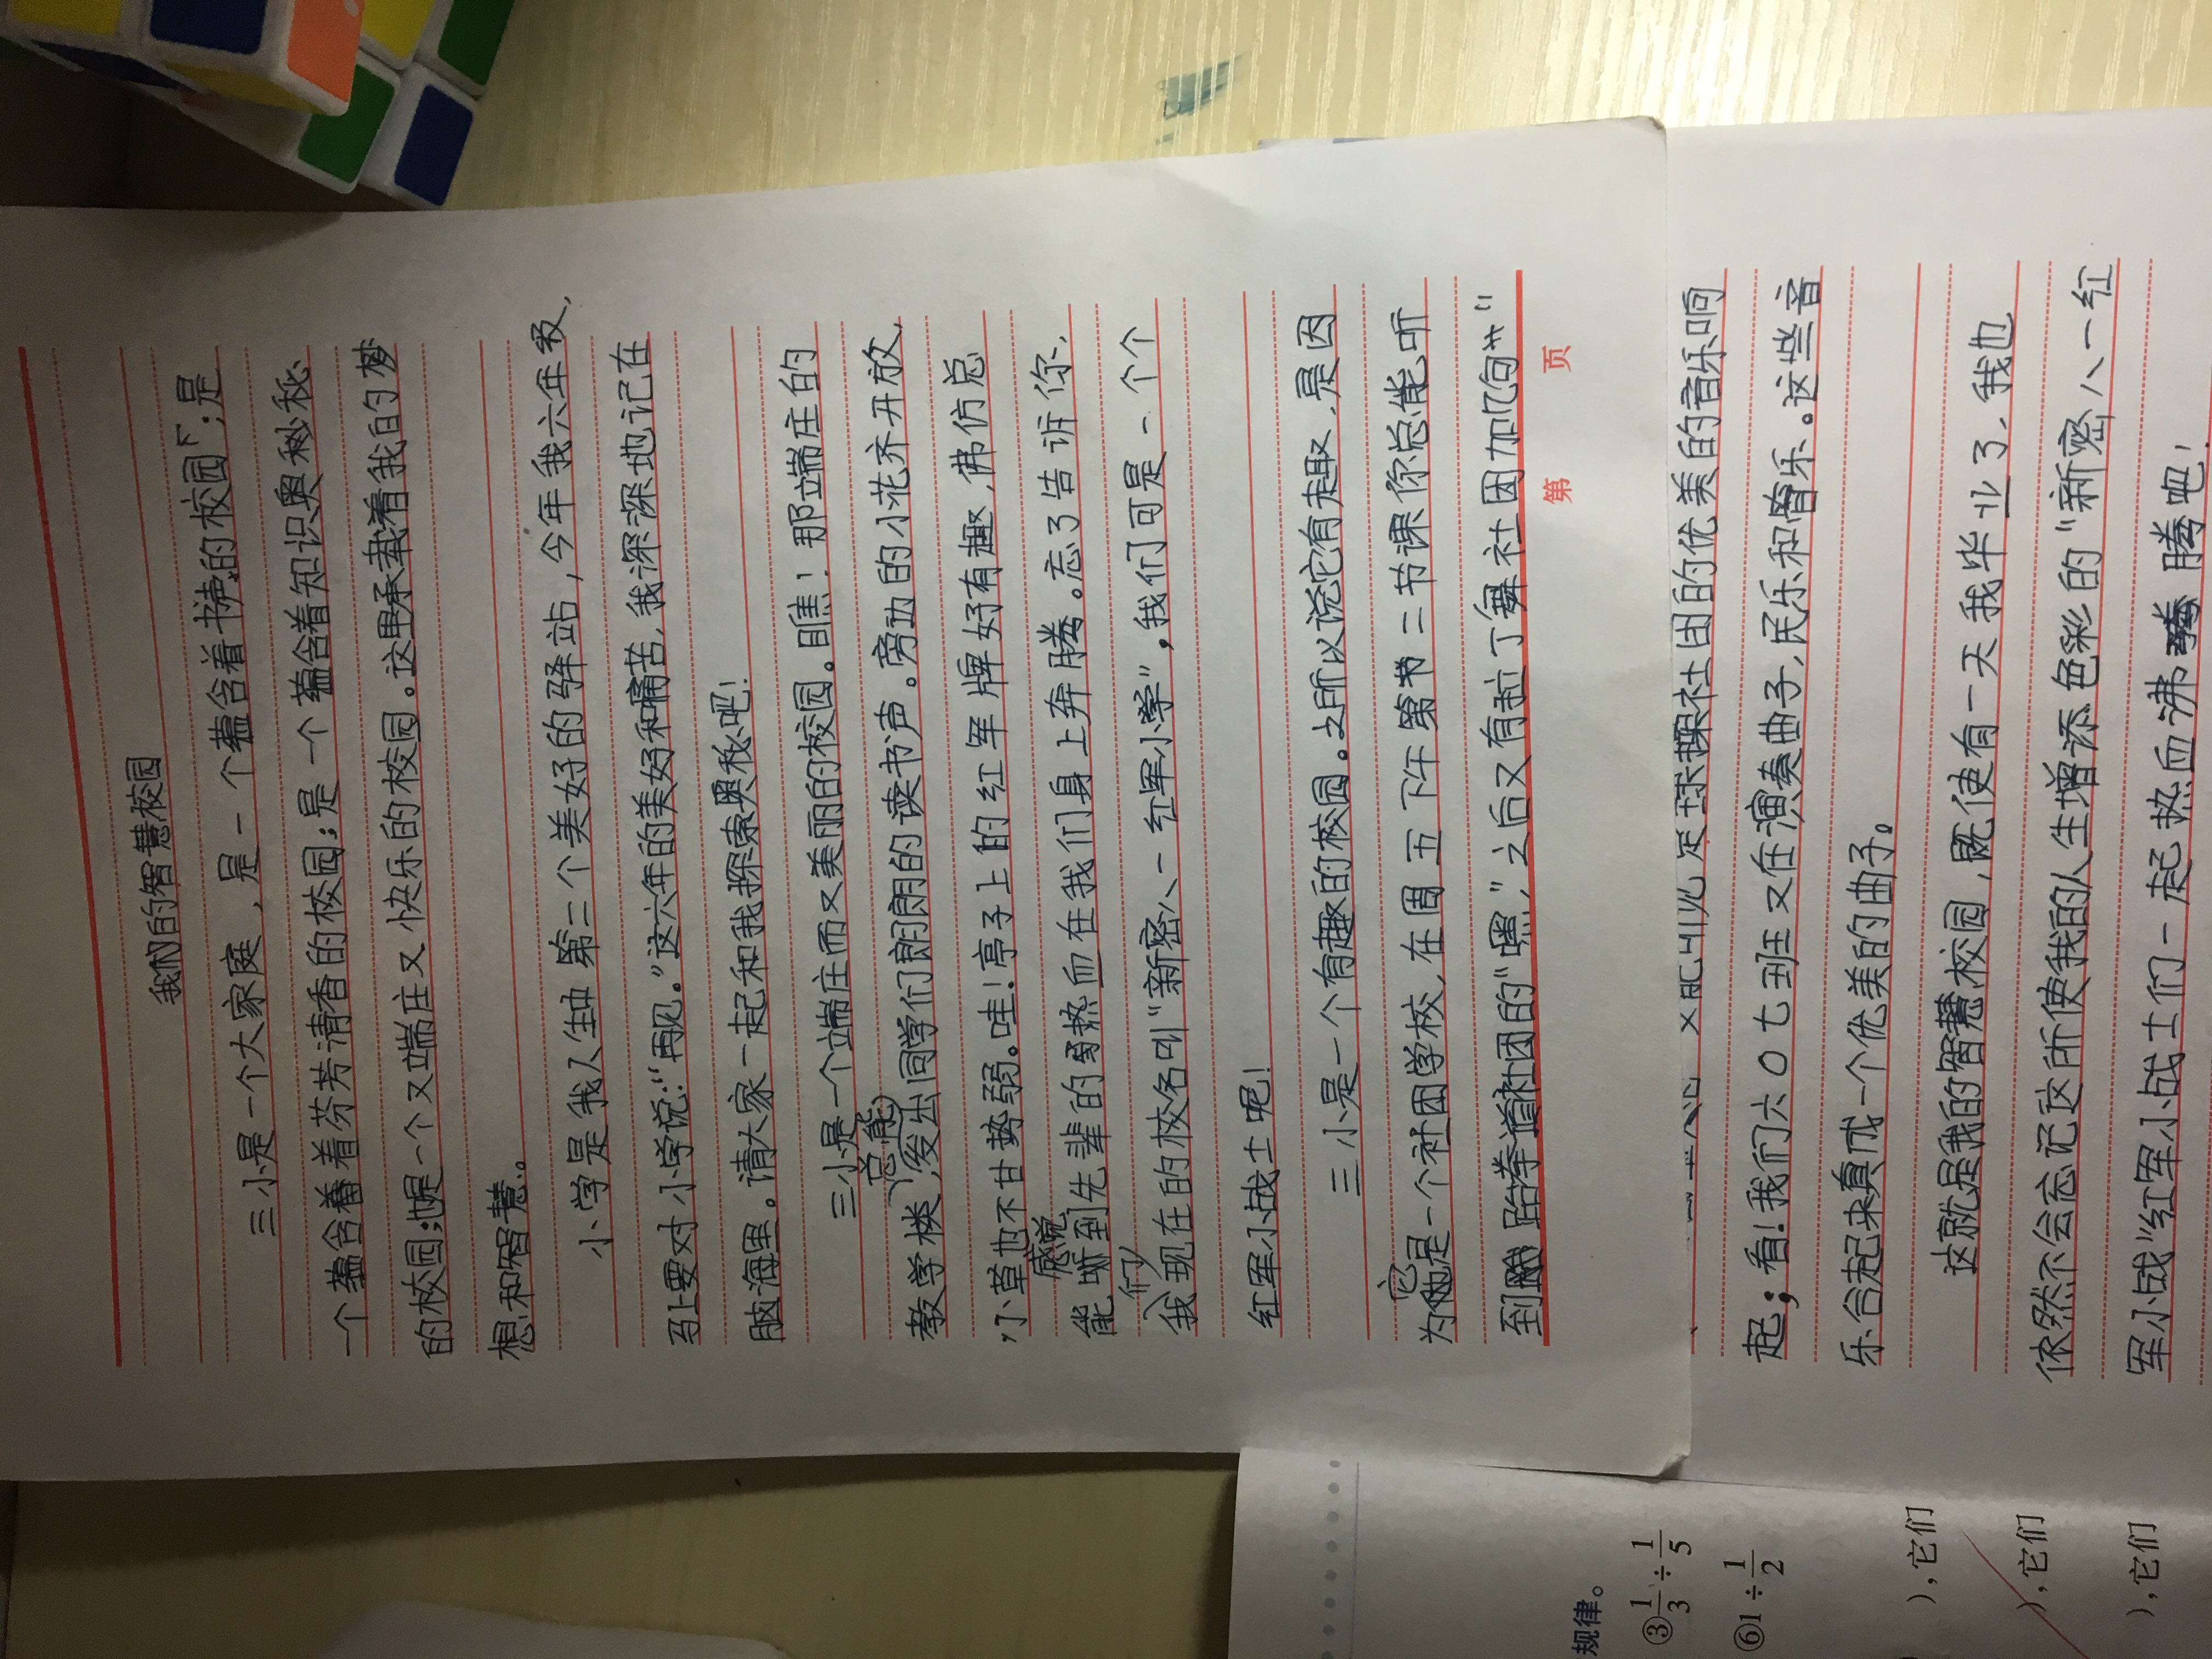 我的智慧校园
三小是一个大家庭，是一个蕴含着书的校园；是
一个蕴含着芬芳清香的校园；是一个蕴含着知识奥秘
的校园；是一个又端庄又快乐的校园。这里承载着我的梦
想和智慧。
小学是我人生中第二个美好的驿站，今年我六年级，
马上要对小学说：“再见。”这六年的美好和痛苦，我深深地记在
脑海里。请大家一起和我探索奥秘吧！
三小是一个端庄而又美丽的校园。瞧！那端庄的
教学楼，（总能）发出同学们朗朗的读书声。旁边的小花齐开放，
小草也不甘势弱。哇！亭子上的红军牌好有趣，佛仿总
能感觉到先辈的热血在我们身上奔腾。忘了告诉你，
我（们）现在的校名叫“新密八一红军小学”，我们可是一个个
红军小战士呢！
三小是一个有趣的校园。之所以说它有趣，是因
为它是一个社团学校，在周五下午第二节课你总能听
到跆拳道社团的“嘿”，之后又有拉丁舞社团加几句“
社团的优美的音乐响
起；看！我们六〇七班又在演奏曲子，民乐和管乐。这些音
乐合起来真成一个优美的曲子。
这就是我的智慧校园，既使有一天我毕业了，我也
依然不会忘记这所使我的人生增添色彩的“新密八一红
军小战”红军小战士们一起热血沸腾吧！
第 页
规律。
③1/3÷1/5
⑥1÷1/2
），它们
），它们
），它们